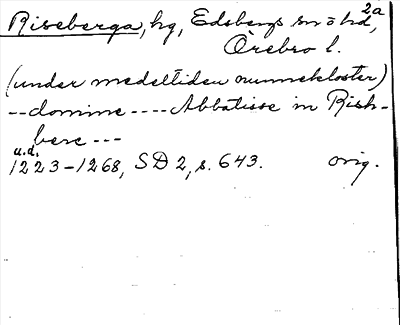 2a
Riseberga, hg, Edsbergs sn o hd,
Örebro l.
(under medeltiden nunnekloster)
-- domine ---- Abbatisse in Rish-
berc ---
u.d.
1223-1268, SD 2, s. 643. orig.